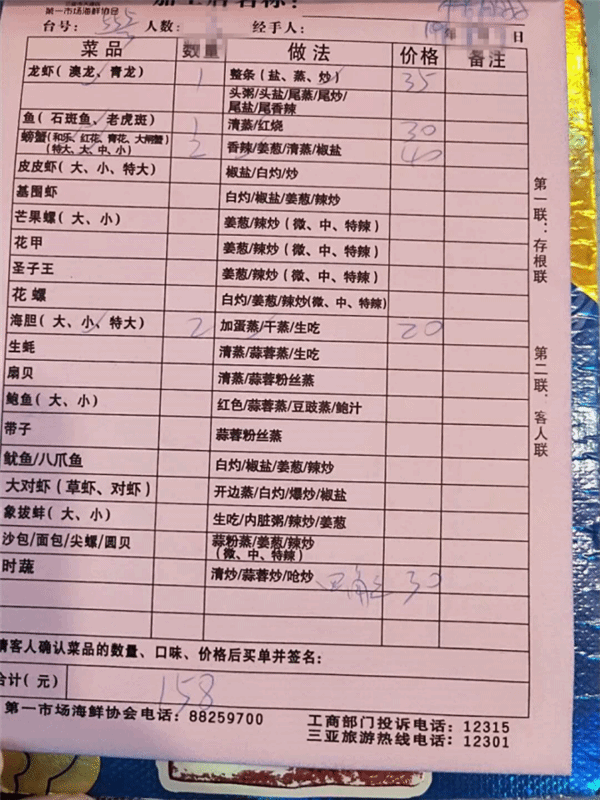 加工店名称：
第一市场海鲜协会
台号： 552 人数： 经手人： 年 日
菜品 数量 做法 价格 备注
龙虾( 澳龙、青龙) 1 整条(盐、蒸、炒) 35
头粥/头盐/尾蒸/尾炒/
尾盐/尾香辣
鱼( 石斑鱼、老虎斑) 1 清蒸/红烧 30
螃蟹(和乐、红花、青花、大闸蟹)
(特大、大、中、小) 2 香辣/姜葱/清蒸/椒盐 40
皮皮虾( 大、小、特大) 椒盐/白灼/炒
基围虾 白灼/椒盐/姜葱/辣炒
芒果螺( 大、小) 姜葱/辣炒( 微、中、特辣 )
花甲 姜葱/辣炒( 微、中、特辣 )
圣子王 姜葱/辣炒( 微、中、特辣 )
花 螺 白灼/姜葱/辣炒(微、中、特辣)
海胆( 大、小、特大) 2 加蛋蒸/干蒸/生吃 20
生蚝 清蒸/蒜蓉蒸/生吃
扇贝 清蒸/蒜蓉粉丝蒸
鲍鱼( 大、小) 红色/蒜蓉蒸/豆豉蒸/鲍汁
带子 蒜蓉粉丝蒸
鱿鱼/八爪鱼 白灼/椒盐/姜葱/辣炒
大对虾( 草虾、对虾) 开边蒸/白灼/爆炒/椒盐
象拔蚌( 大、小) 生吃/内脏粥/辣炒/姜葱
沙包/面包/尖螺/圆贝 蒜粉蒸/姜葱/辣炒
(微、中、特辣)
时蔬 清炒/蒜蓉炒/呛炒 四角豆 30
请客人确认菜品的数量、口味、价格后买单并签名：
合计(元) 158
第一市场海鲜协会电话：88259700
工商部门投诉电话：12315
三亚旅游热线电话：12301
第一联：存根联
第二联：客人联